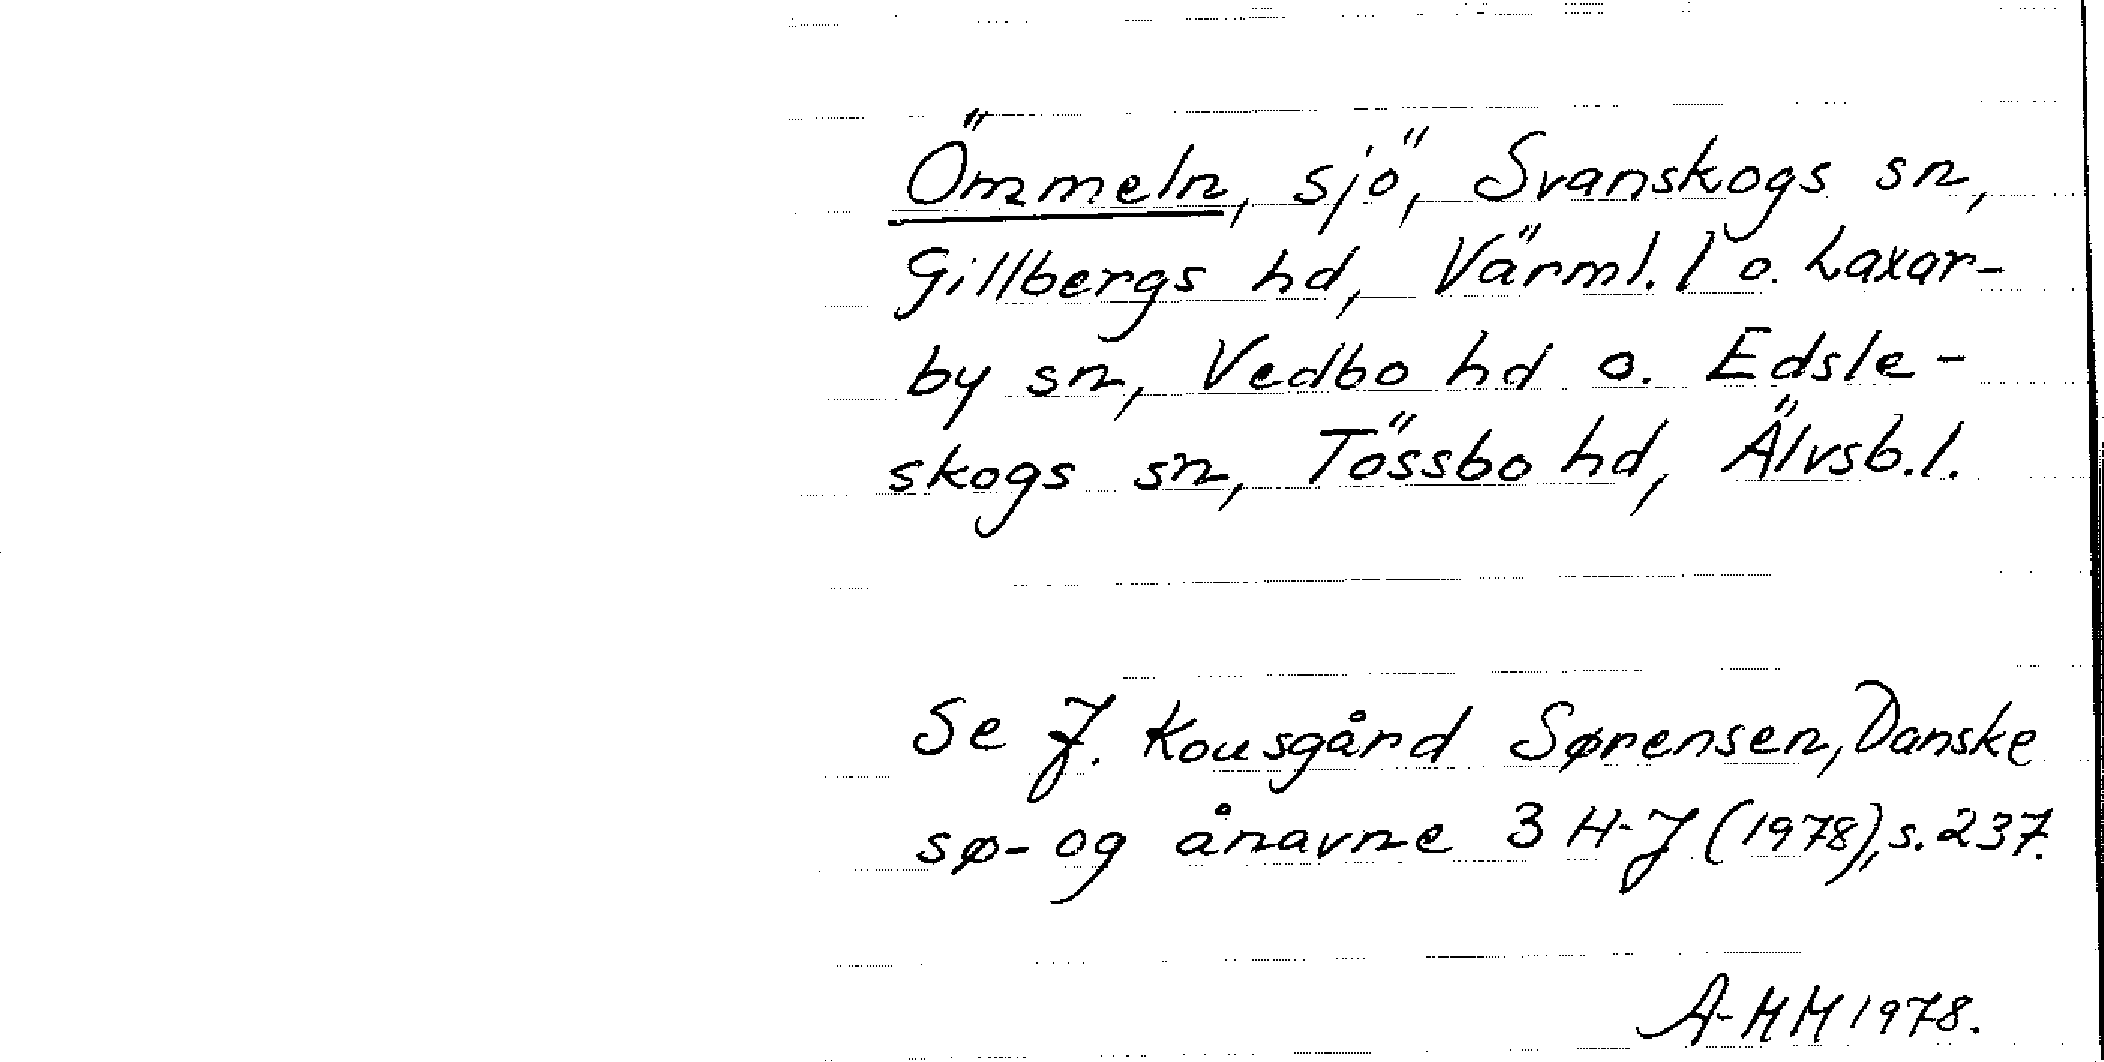 Ömmeln, sjö, Svanskogs sn,
Gillbergs hd, Värml. l o. Laxar-
by sn, Vedbo hd o. Edsle-
skogs sn, Tössbo hd, Älvsb.l.
Se J. Kousgård Sørensen, Danske
sø- og ånavne 3 H-J (1978), s. 237.
A-MM 1978.